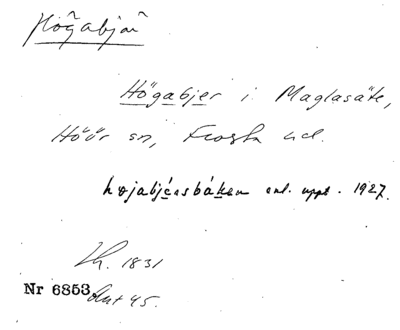 Högabjär
Högabjer i Maglasäte,
Höör sn, Frosta hd.
højabjersbáken enl. uppt. 1927.
Lh. 1831
Nr 6853.